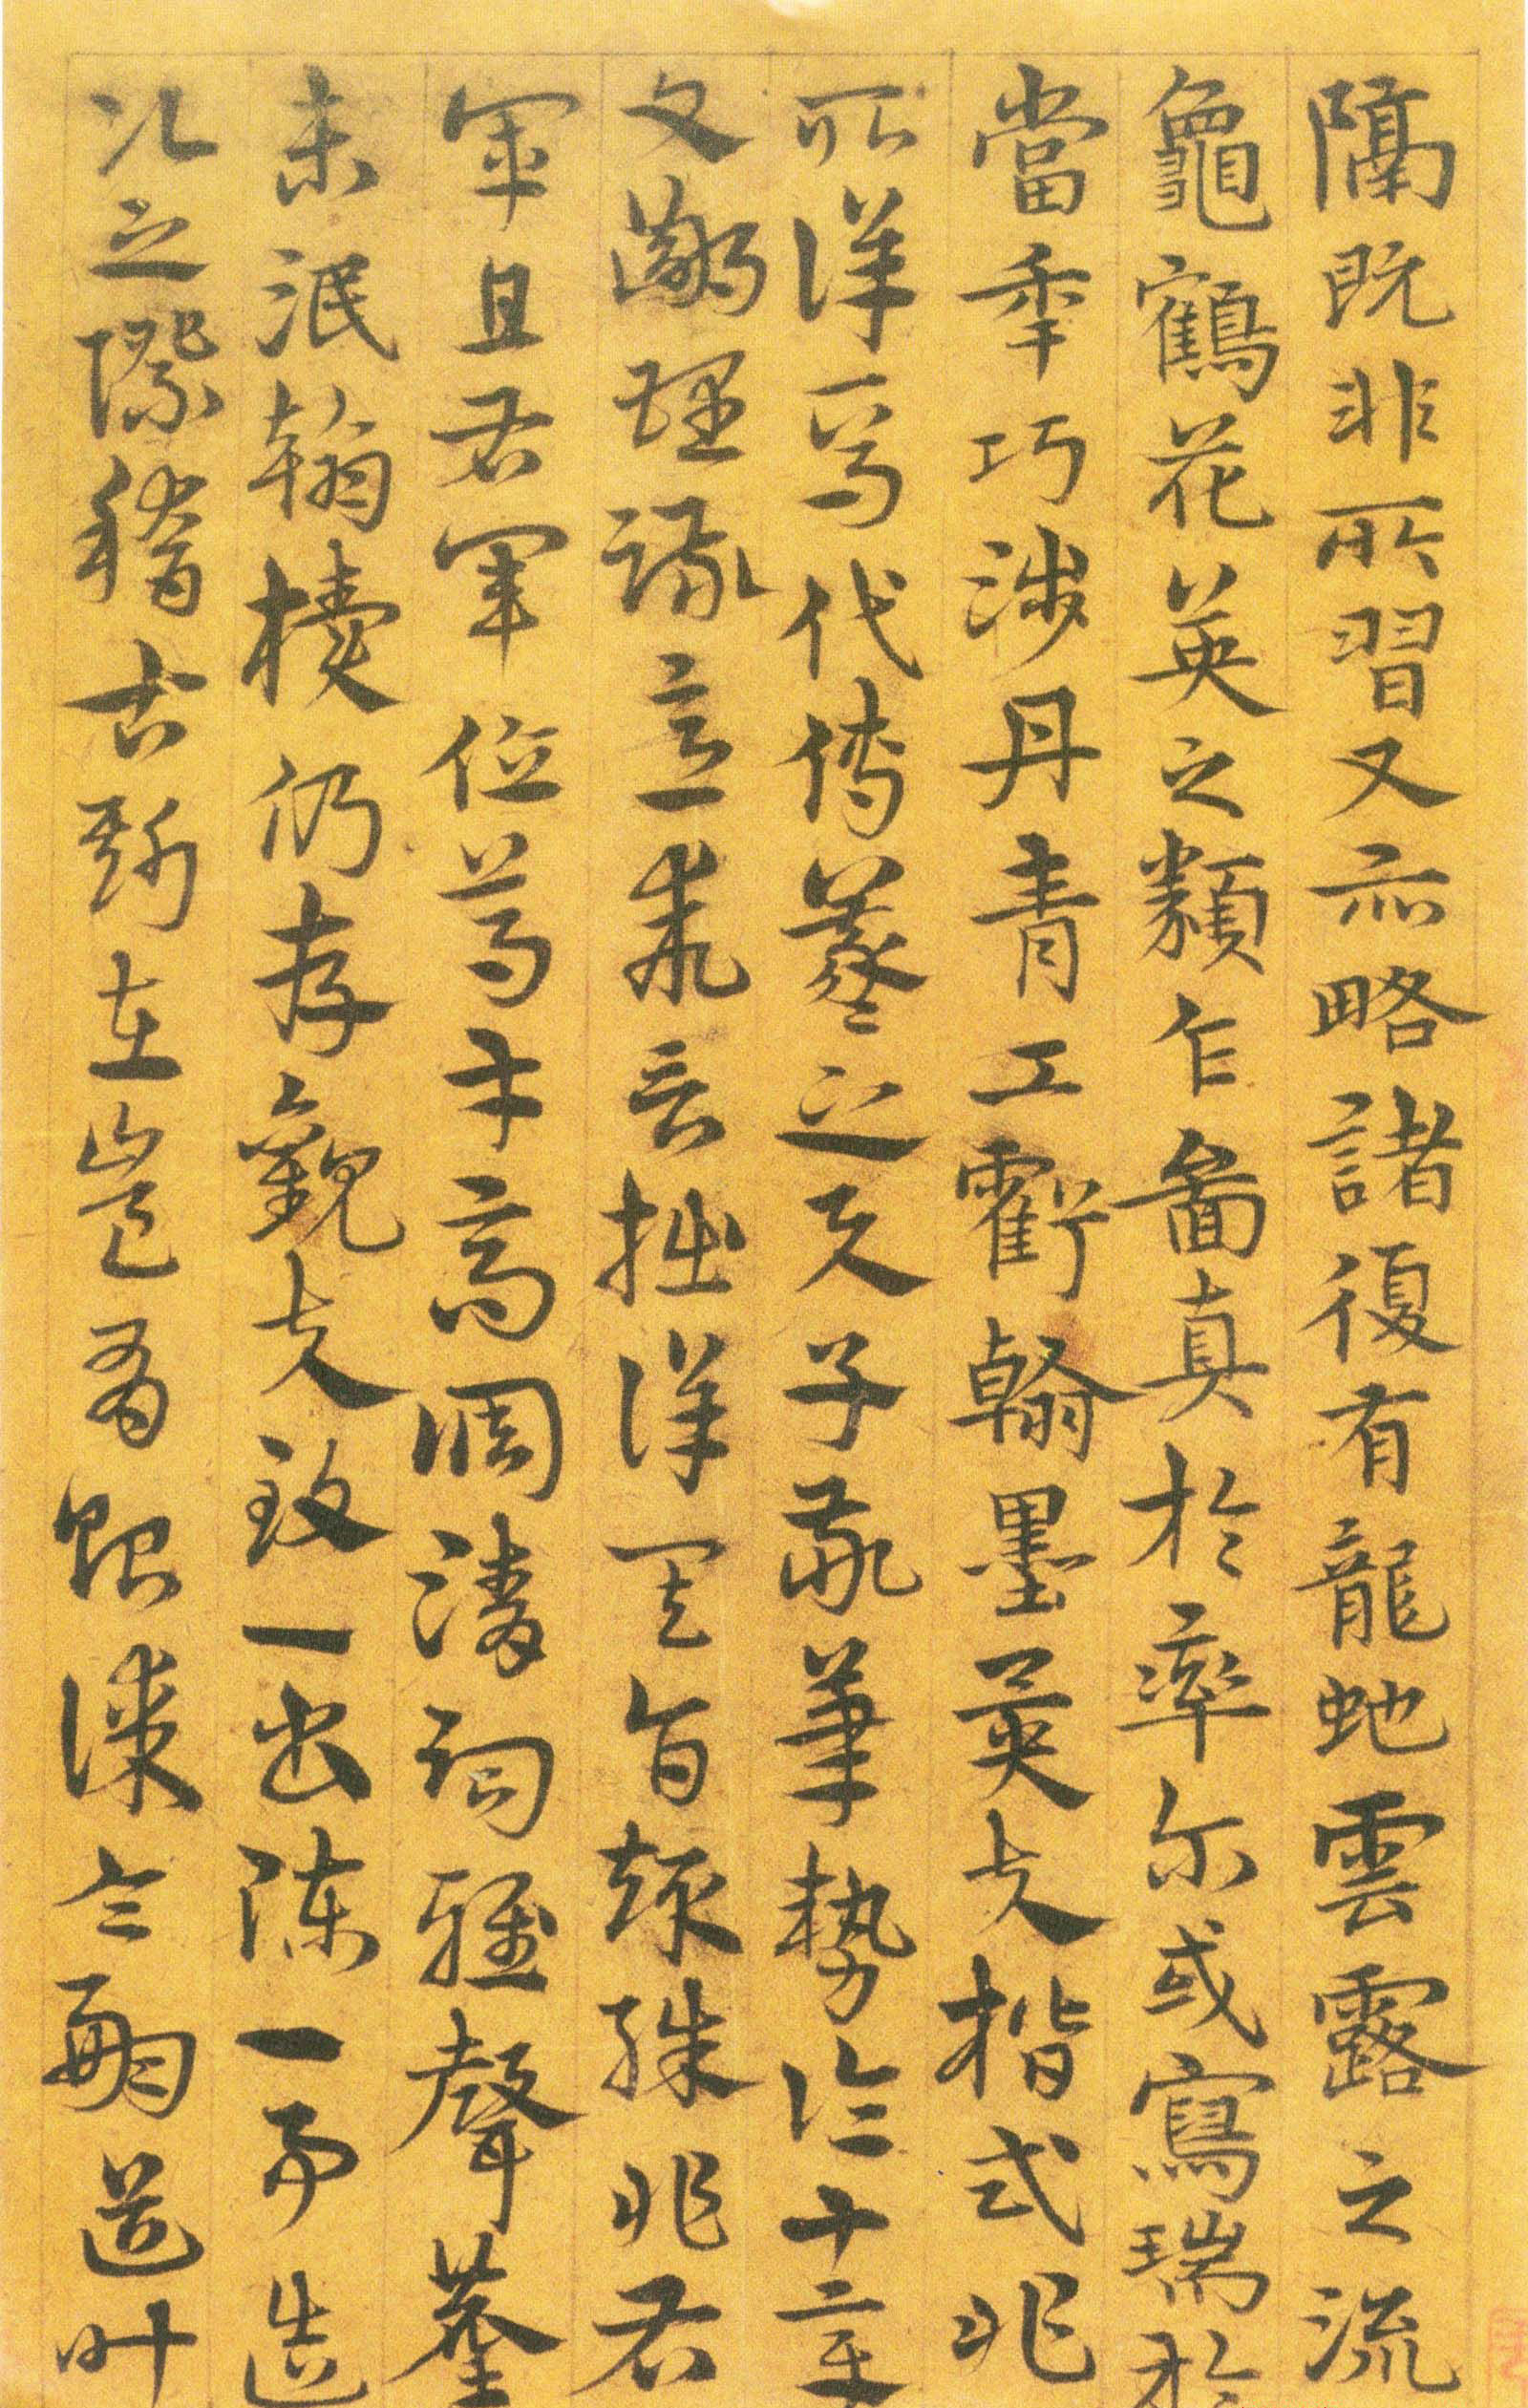 隔既非所習又亦略諸復有龍虵雲露之流
龜鶴花英之類乍啚真於率尔或寫瑞於
當年巧涉丹青工虧翰墨異夫楷式非
所詳焉代傳羲之与子敬筆勢論十章
文鄙理疎意乖言拙詳其旨趣殊非右
軍且右軍位重才高調清詞雅聲塵
未泯翰櫝仍存觀夫致一書陳一事造
次之際稽古斯在豈有貽謀令嗣道叶